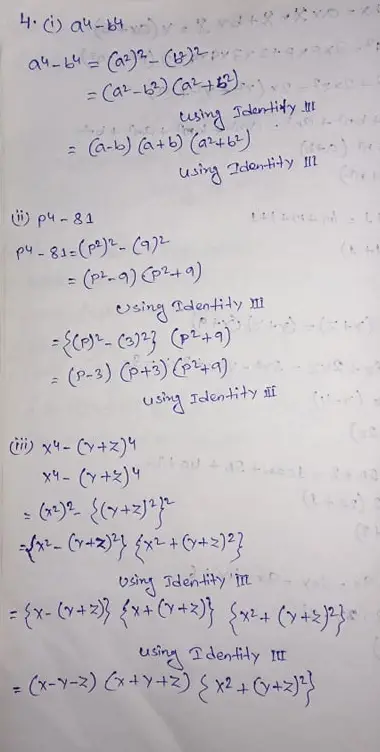 4. (i) a⁴-b⁴
a⁴-b⁴ = (a²)² - (b²)²
= (a²-b²) (a²+b²)
Using Identity III
= (a-b) (a+b) (a²+b²)
Using Identity III
(ii) P⁴ - 81
P⁴ - 81 = (P²)² - (9)²
= (P²-9) (P²+9)
Using Identity III
= {(P)² - (3)²} (P²+9)
= (P-3) (P+3) (P²+9)
Using Identity III
(iii) x⁴ - (Y+Z)⁴
x⁴ - (Y+Z)⁴
= (x²)² - {(Y+Z)²}²
= {x² - (Y+Z)²} {x² + (Y+Z)²}
Using Identity III
= {x - (Y+Z)} {x + (Y+Z)} {x² + (Y+Z)²}
Using Identity III
= (x-Y-Z) (x+Y+Z) {x² + (Y+Z)²}